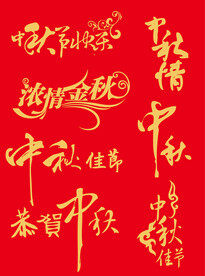 中秋节快乐
中秋情
浓情金秋
中秋
中秋佳節
恭賀中秋
中秋佳節